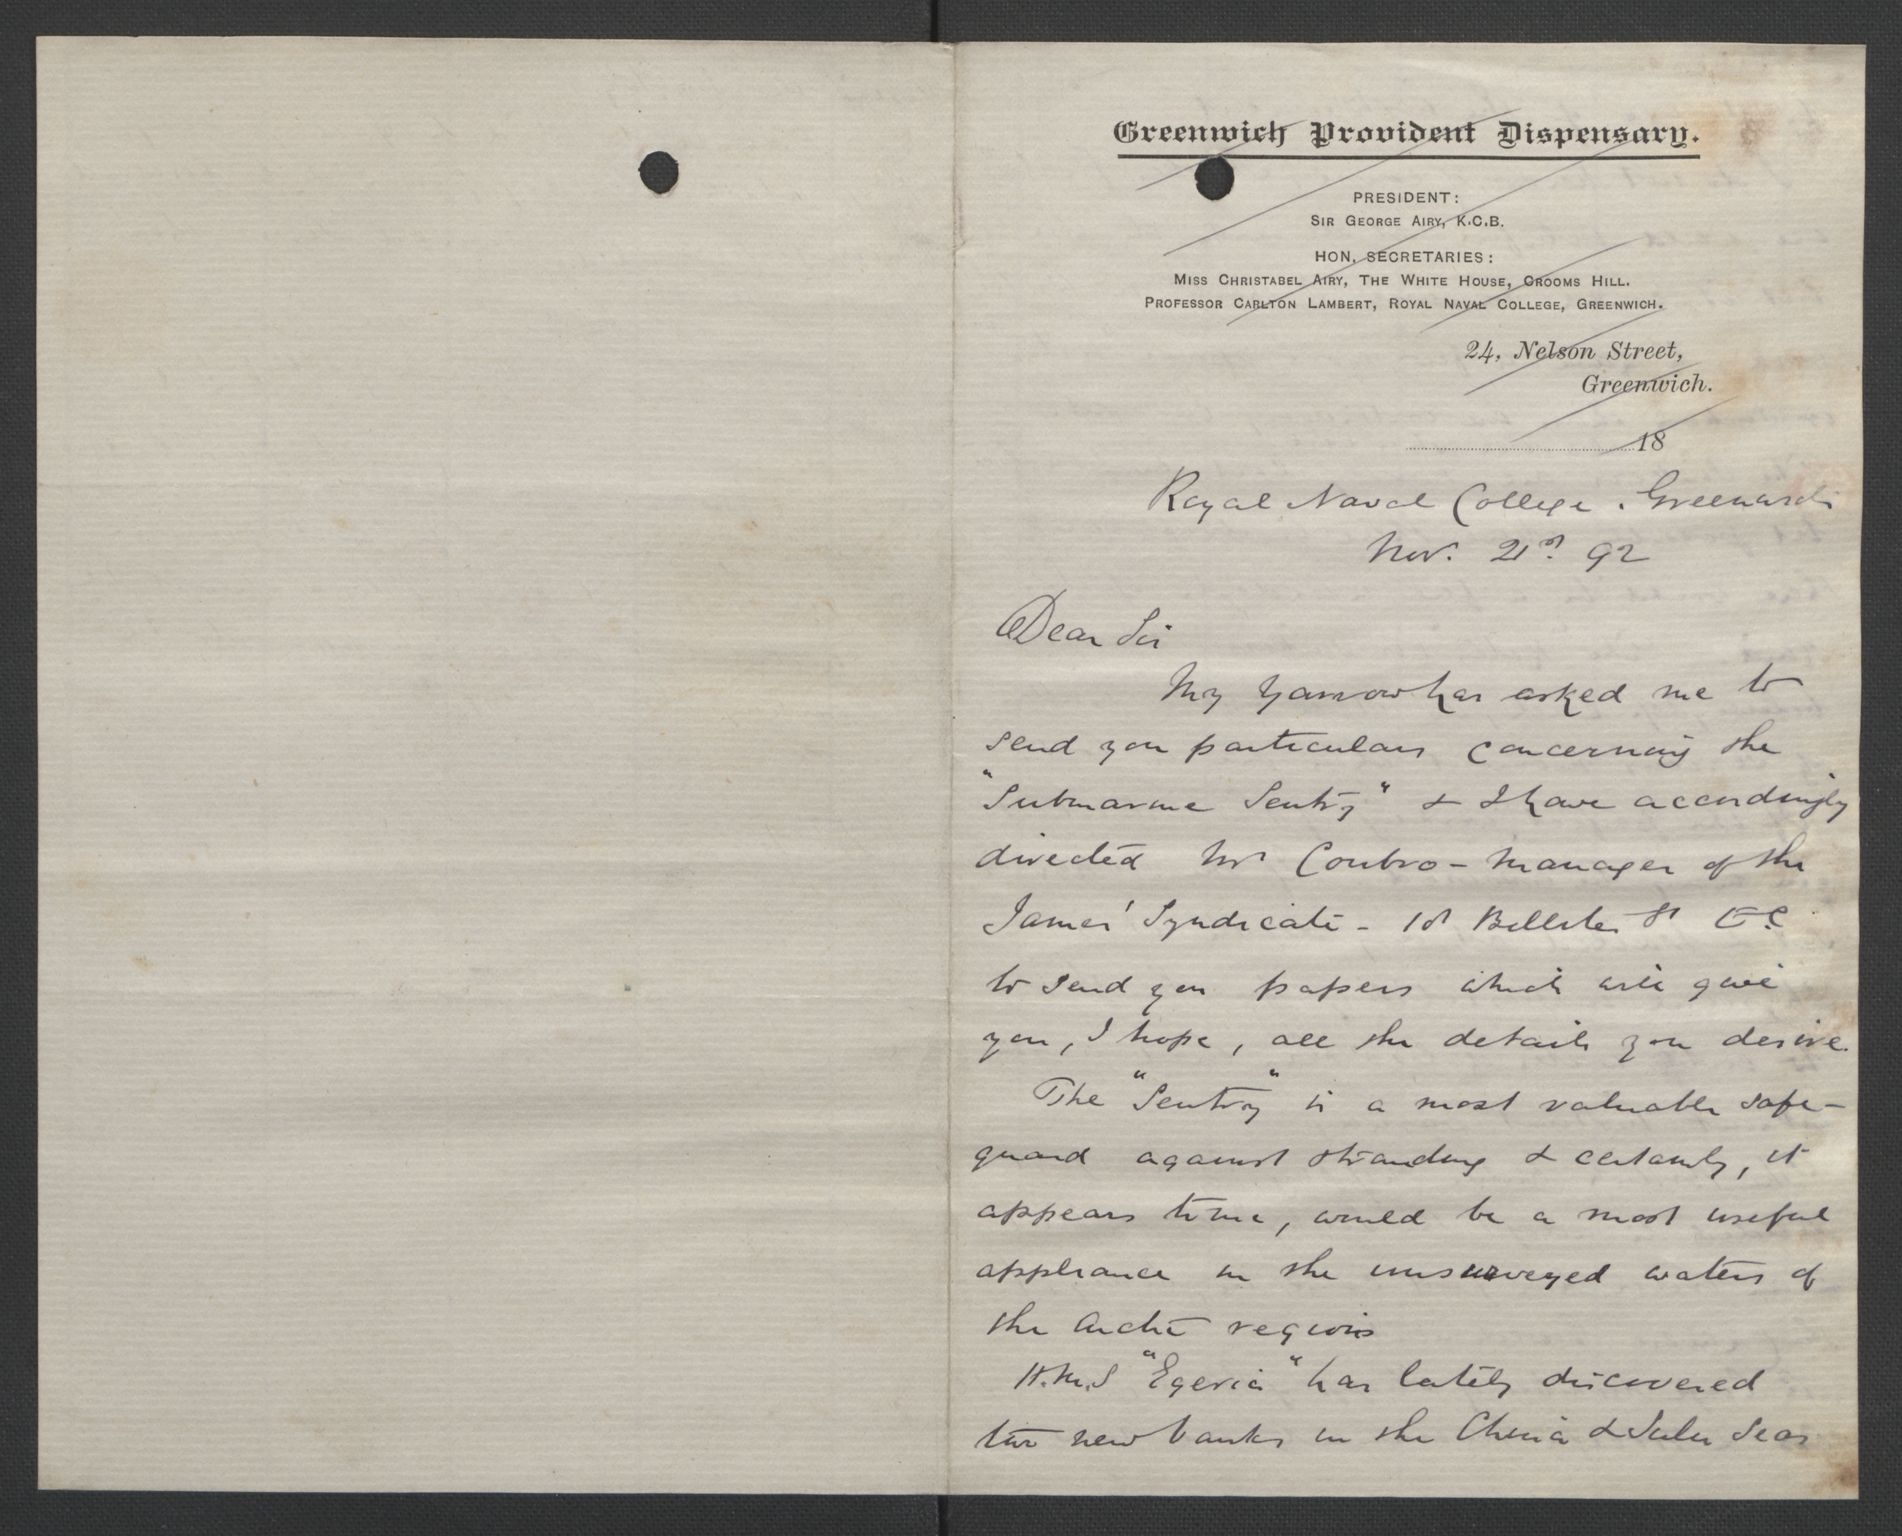 Greenwich Provident Dispensary.
PRESIDENT:
SIR GEORGE AIRY, K.C.B.
HON. SECRETARIES:
MISS CHRISTABEL AIRY, THE WHITE HOUSE, CROOMS HILL.
PROFESSOR CARLTON LAMBERT, ROYAL NAVAL COLLEGE, GREENWICH.
24, Nelson Street,
Greenwich.
18
Royal Naval College. Greenwich
Nov. 21st 92
Dear Sir
Mr Yarrow has asked me to
send you particulars concerning the
"Submarine Sentry" & I have accordingly
directed Mr Coubro - Manager of the
James' Syndicate - 18 Billiter St E.C
to send you papers which will give
you, I hope, all the details you desire.
The "Sentry" is a most valuable safe-
guard against stranding & certainly, it
appears to me, would be a most useful
appliance in the unsurveyed waters of
the Arctic regions
H.M.S "Egeria" has lately discovered
two new banks in the China & Sulu Seas